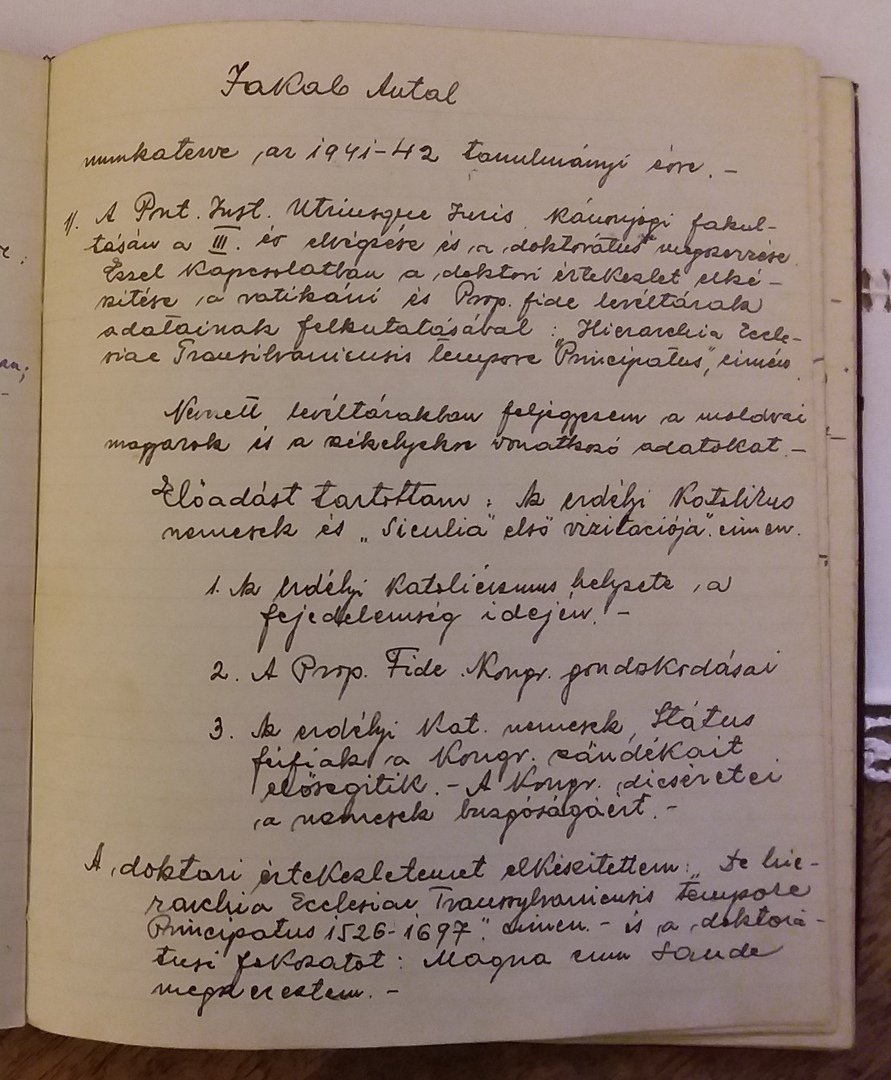 Jakab Antal
munkaterve az 1941-42 tanulmányi évre. -
1/. A Pont. Inst. Utriusque Iuris kánonjogi fakul-
tásán a III. év elvégzése és a doktorátus megszerzése.
Ezzel kapcsolatban a doktori értekezlet elké-
szitése a vatikáni és Prop. fide levéltárak
adatainak felkutatásával: "Hierarchia Eccle-
siae Transilvaniensis tempore Principatus", cimén.
Nevezett levéltárakban feljegyzem a moldvai
magyarok és a székelyekre vonatkozó adatokat. -
Előadást tartottam: Az erdélyi Katolikus
nemesek és „Siculia" első vizitációja". cimen.
1. Az erdélyi katolicizmus helyzete a
fejedelemség idején. -
2. A Prop. Fide Kongr. gondoskodásai
3. Az erdélyi Kat. nemesek, Státus
férfiak a Kongr. szándékait
elősegitik. - A Kongr. dicséretei
a nemesek buzgóságáért. -
A doktori értekezletemet elkészitettem: „De hie-
rarchia Ecclesiae Transsylvaniensis tempore
Principatus 1526-1697." cimen. - és a doktorá-
tusi fokozatot: Magna cum Laude
megszereztem. -